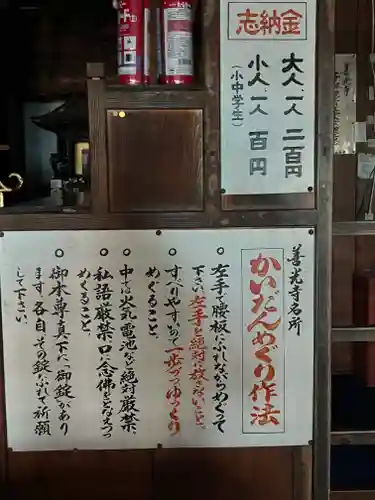 志納金
大人一人二百円
小人一人百円
(小中学生)
善光寺名所
かいだんめぐり作法
○左手で腰板にふれながらめぐって
下さい。左手を絶対に放さないこと。
○すべりやすいので一歩づつゆっくり
めぐること。
○中では火気、電池など絶対厳禁、
私語も厳禁、口に念佛をとなえつつ
めぐること。
○御本尊真下に、御錠があり
ます。各自その錠にふれて祈願
して下さい。